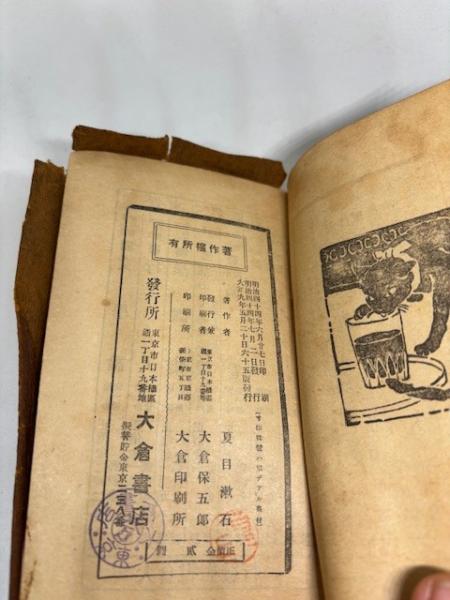 著作權所有
明治四十四年六月廿七日印刷
明治四十四年七月二日發行
大正九年五月二十日六十五版發行
著作者
夏目漱石
發行兼
印刷者
大倉保五郎
印刷所
大倉印刷所
發行所
東京市日本橋區
通一丁目十九番地
大倉書店
振替貯金東京二三八番
正價金貳圓